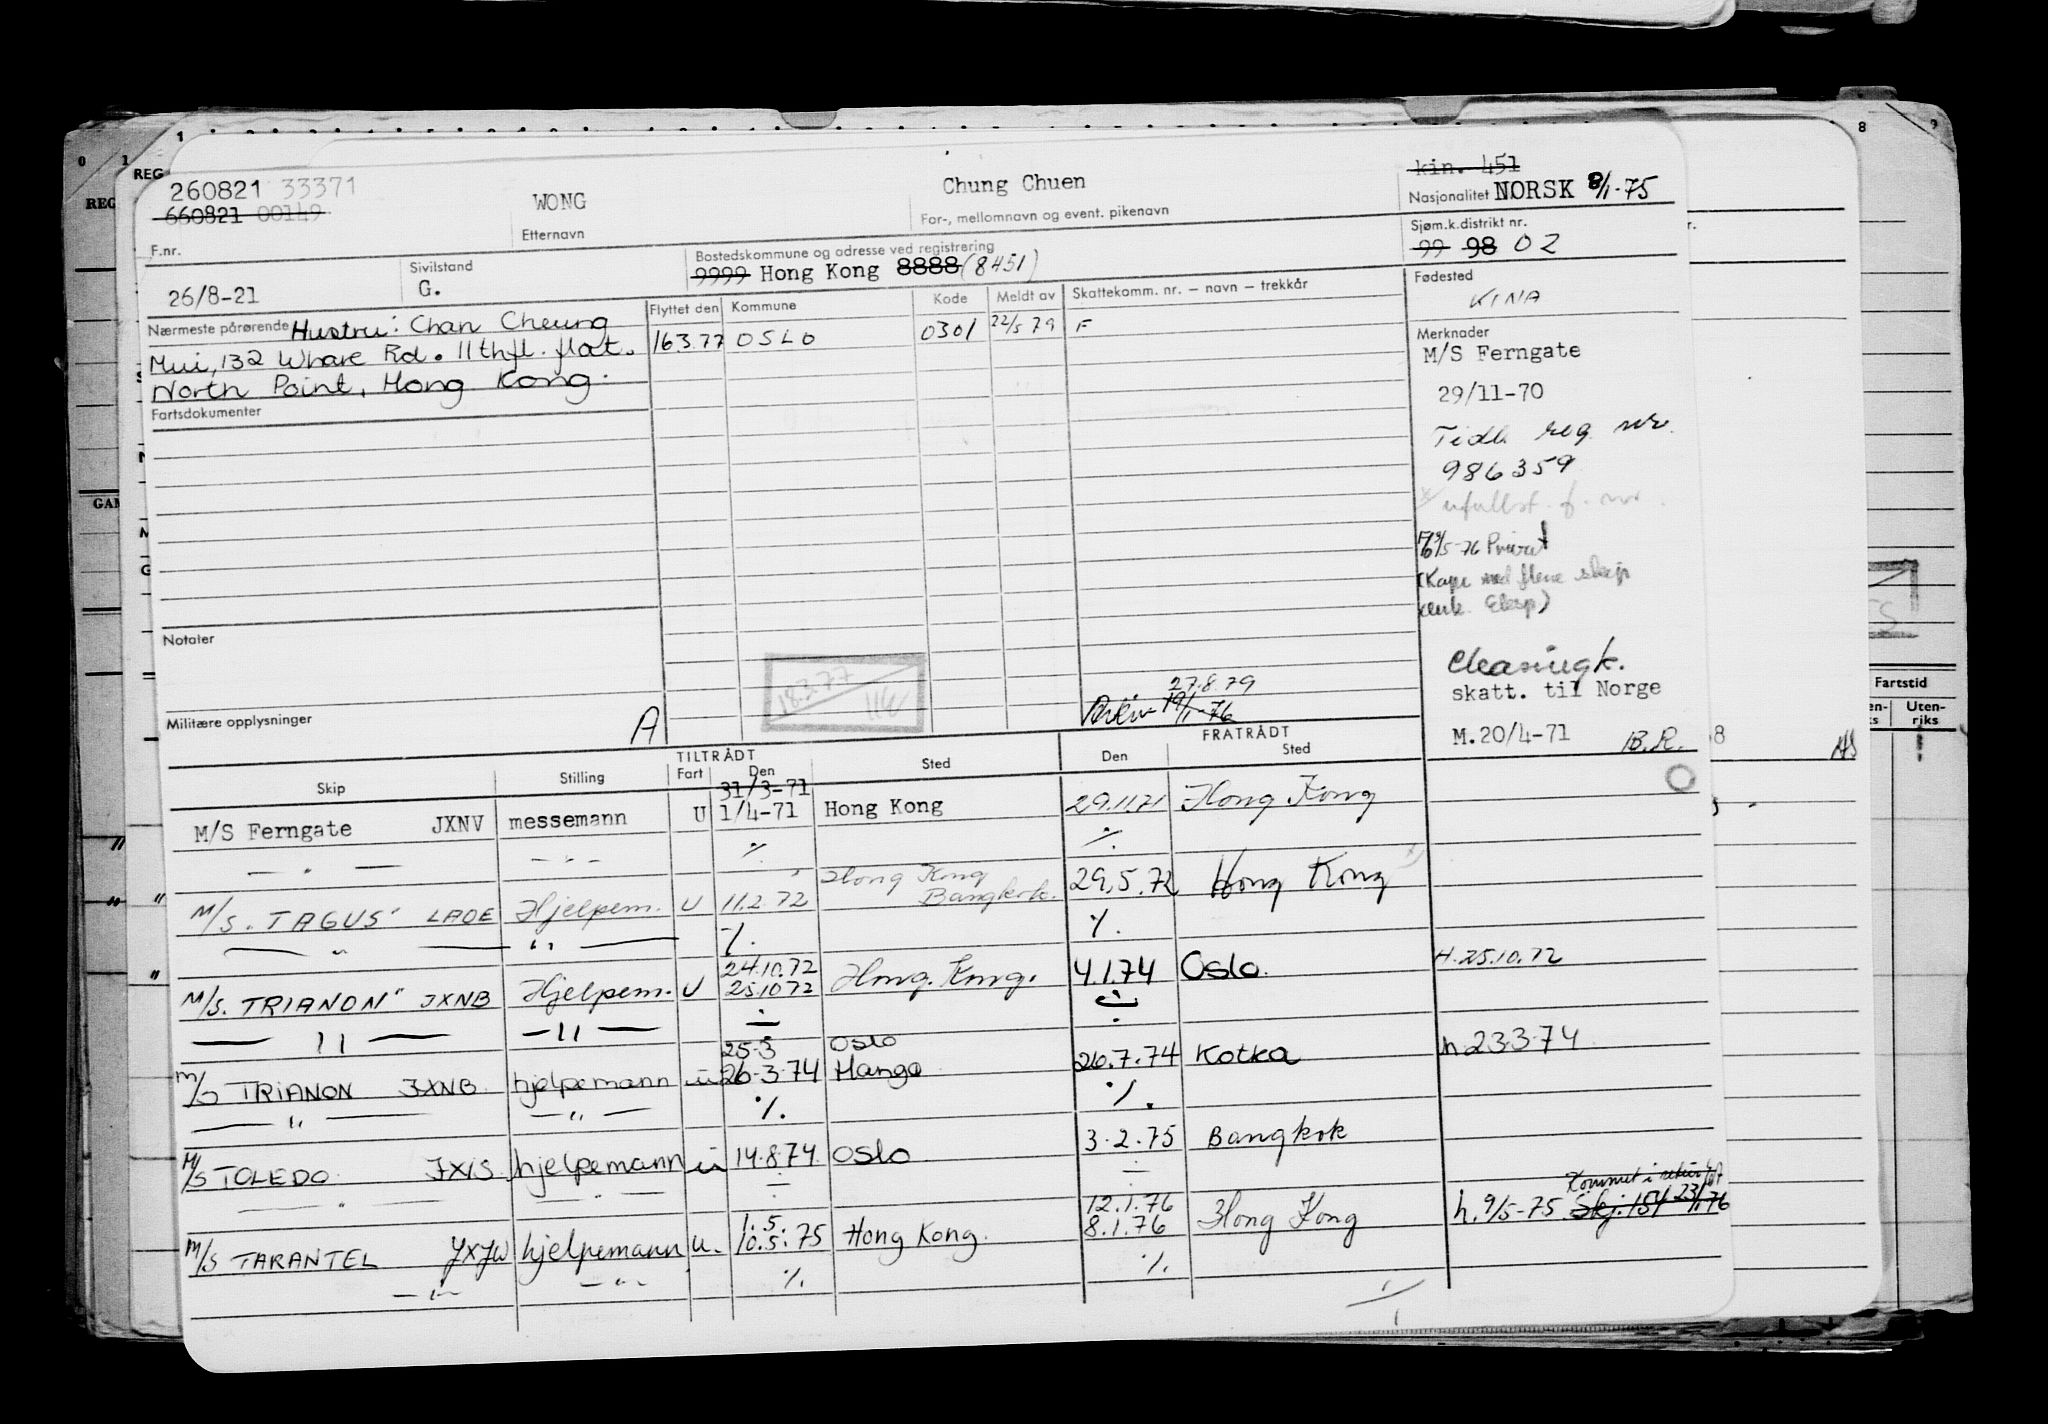 260821 33371
660821 00149
F.nr.
WONG
Etternavn
Chung Chuen
For-, mellomnavn og event. pikenavn
kin. 451
Nasjonalitet NORSK 8/1-75
Sjøm.k.distrikt nr.
99 98 02
26/8-21
Sivilstand
G.
Bostedskommune og adresse ved registrering
9999 Hong Kong 8888 (8451)
Fødested
KINA
Nærmeste pårørende Hustru: Chan Cheung
Mui, 132 Whare Rd. 11thfl. flat.
North Point, Hong Kong.
Flyttet den Kommune Kode Meldt av Skattekomm. nr. — navn — trekkår
16.3.77 OSLO 0301 22/5 79 F
Fartsdokumenter
Merknader
M/S Ferngate
29/11-70
Tidl. reg. nr.
986359
ufullst. f. nr.
Notater
Clearingk.
skatt. til Norge
M.20/4-71 B.R.
Militære opplysninger
A
18.3.77
27.8.79
Arkiv 19/1-76
TILTRÅDT FRATRÅDT
Skip Stilling Fart Den Sted Den Sted
31/3-71
M/S Ferngate JXNV messemann U 1/4-71 Hong Kong 29.11.71 Hong Kong
— " — — " — ⁒ ⁒
Hong Kong
M/S. TAGUS" LAOE Hjelpem. U 11.2.72 Bangkok. 29.5.72 Hong Kong
— " — — " — ⁒ ⁒
24.10.72
M/S. TRIANON" JXNB Hjelpem. U 25.10.72 Hong. Kong. 4.1.74 Oslo. H. 25.10.72
— " — — " — ÷ ÷
25.3 Oslo
M/S TRIANON JXNB. hjelpemann u 26.3.74 Hangø 26.7.74 Kotka h. 23.3.74
— " — — " — ⁒ ⁒
M/S TOLEDO JXIS. hjelpemann u 14.8.74. Oslo 3.2.75 Bangkok
— " — — " — ÷ ÷
1.5. 12.1.76
M/S TARANTEL JXJW hjelpemann u. 10.5.75 Hong Kong. 8.1.76 Hong Kong h. 9/5-75 Skj. 154 23/1.76
Kommet i retur
— " — — " — ⁒ ⁒
Fartstid
Uten-
riks
REG
REG
GAM